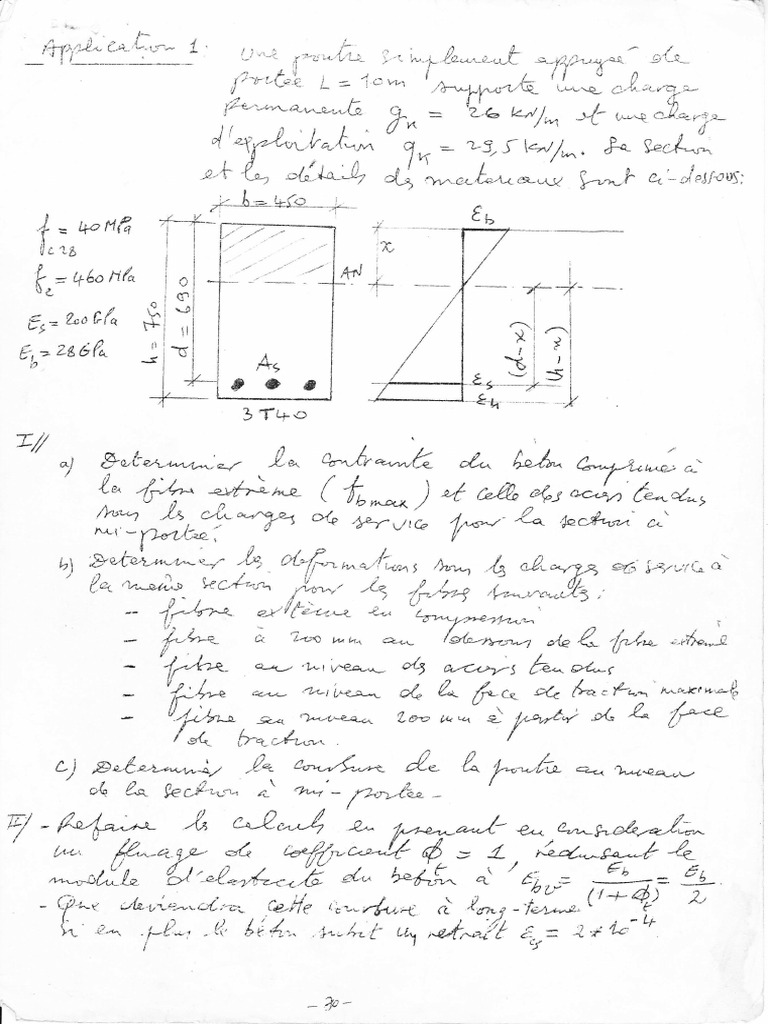 Application 1: Une poutre simplement appuyée de
portée L = 10m supporte une charge
permanente gk = 26 kN/m et une charge
d'exploitation qk = 29,5 kN/m. Sa section
et les détails des materiaux sont ci-dessous:
b = 450
εb
fc28 = 40 MPa
x
fe = 460 MPa
AN
Es = 200 GPa
h = 750
d = 690
(d-x)
(h-x)
Eb = 28 GPa
As
εs
εh
3T40
I//
a) Determiner la contrainte du béton comprimé à
la fibre extrême (fbmax) et celle des aciers tendus
sous les charges de service pour la section à
mi-portée.
b) Determiner les deformations sous les charges de service à
la même section pour les fibres suivantes:
- fibre extême en compression
- fibre à 200 mm au dessous de la fibre extrême
- fibre au niveau des aciers tendus
- fibre au niveau de la face de traction maximale
- fibre au niveau 200 mm à partir de la face
de traction.
c) Determiner la courbure de la poutre au niveau
de la section à mi-portée-
II/ - Refaire les calculs en prenant en consideration
un fluage de coefficient ϕt = 1, réduisant le
module d'elasticité du beton à Ebv = Eb/(1+ϕt) = Eb/2.
- Que deviendra cette courbure à long-terme
si en plus le béton subit un retrait εcs = 2*10⁻⁴.
- 70 -